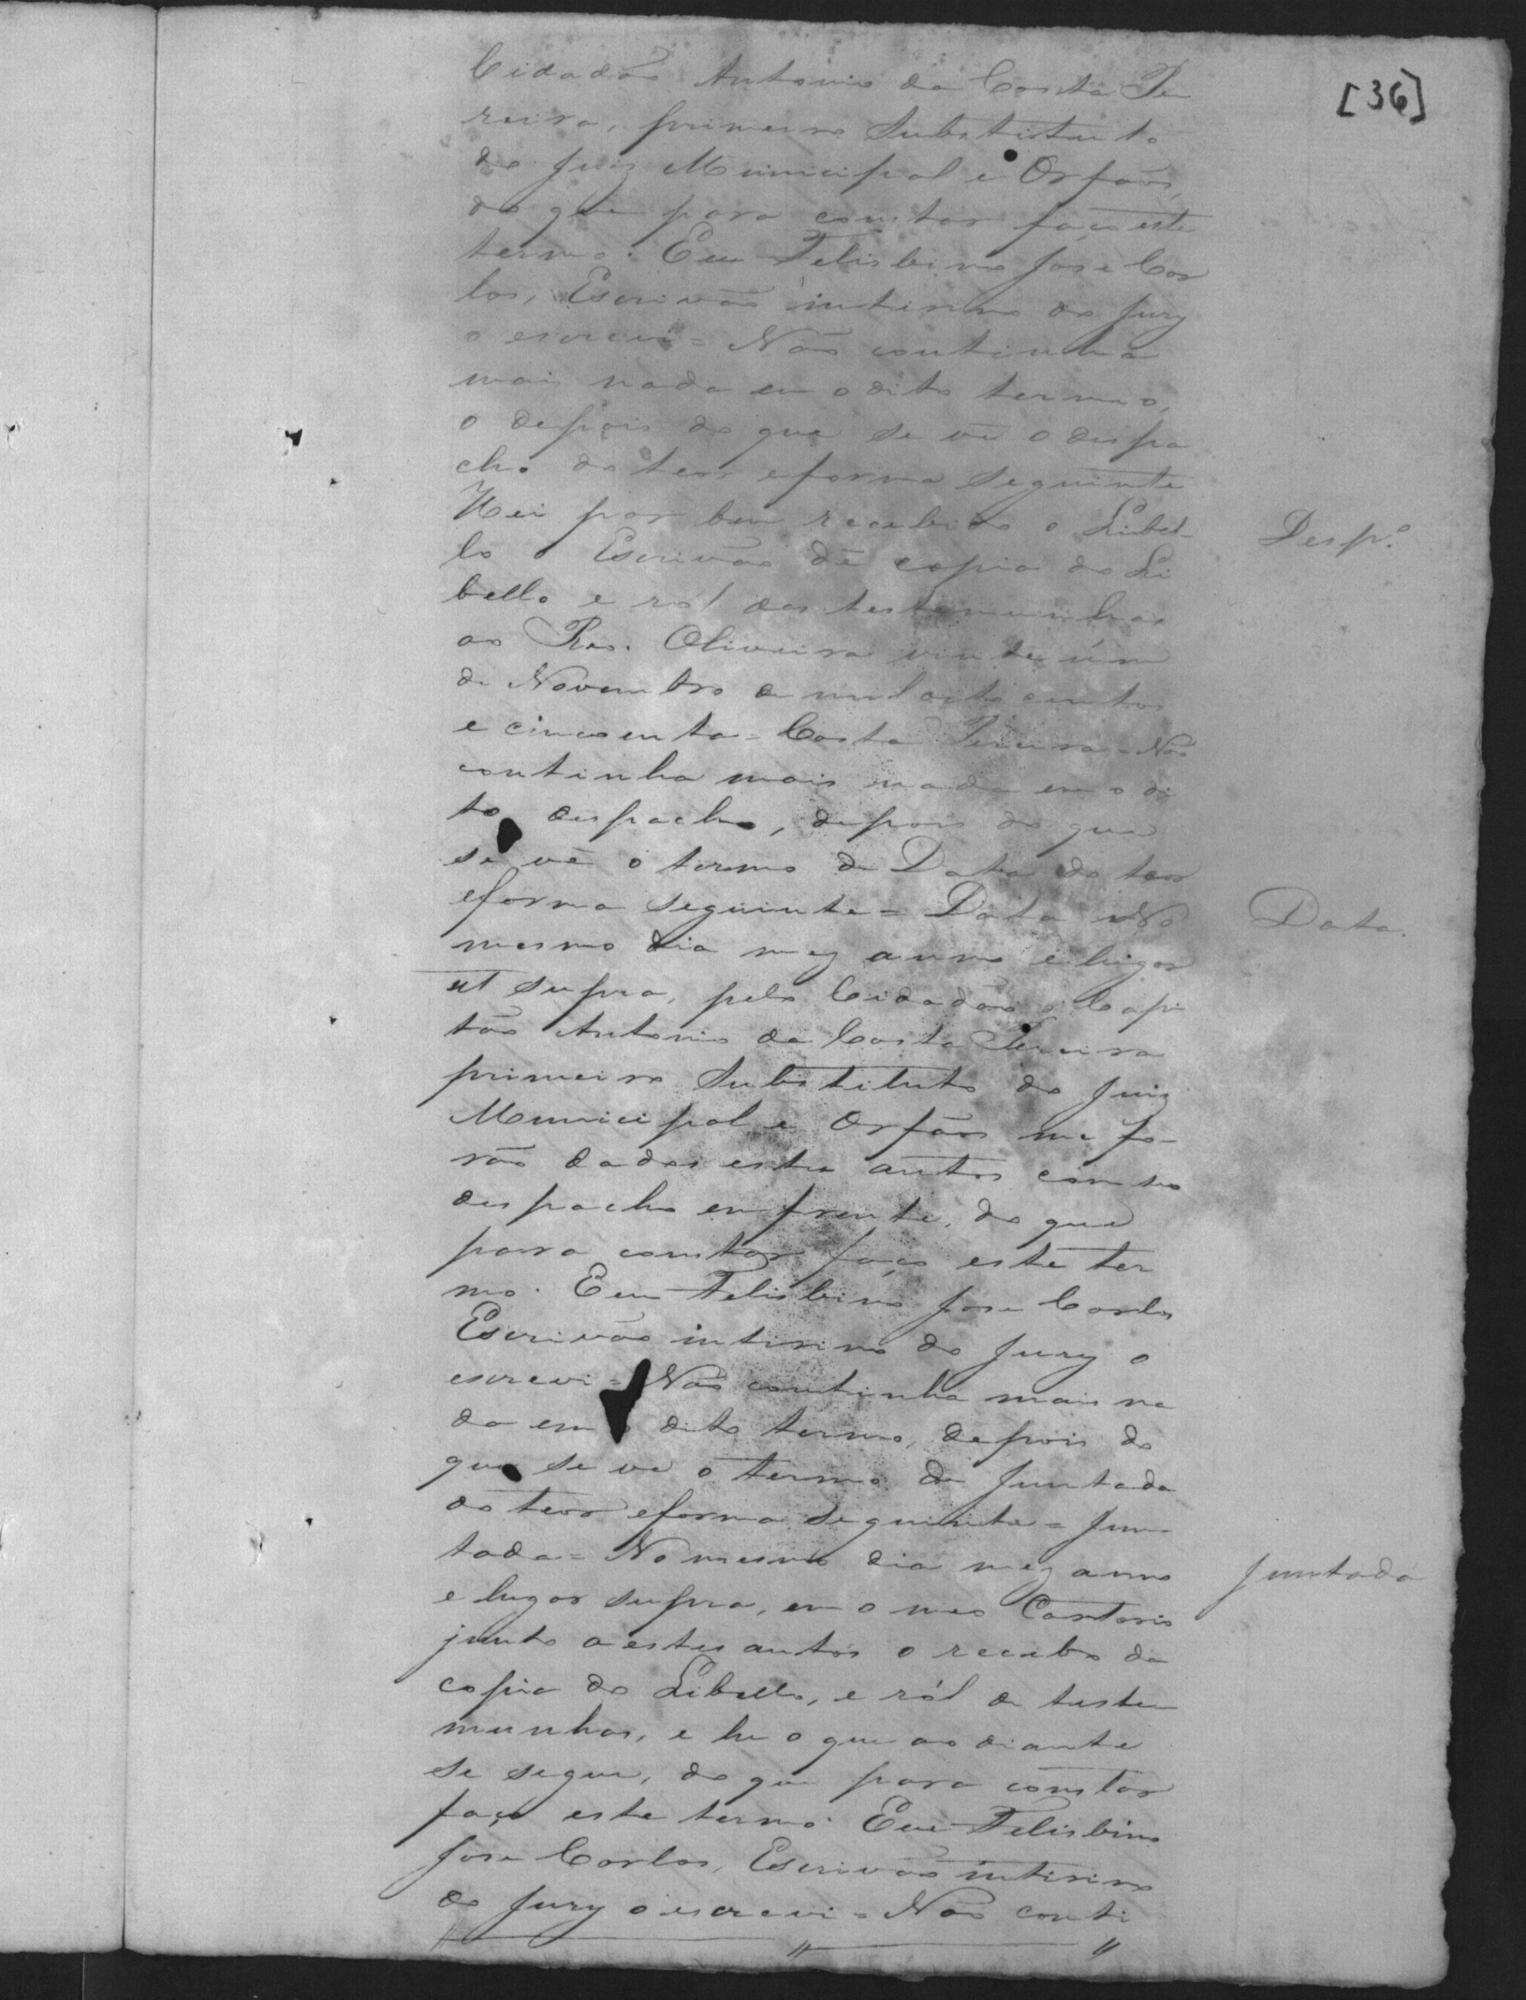 [36]
Cidadão Antonio da Costa Pe
reira, primeiro Substituto
do Juiz Municipal e Orfãos,
do que para constar faço este
termo. Eu Felisbino Jose Car
los, Escrivão intirino do Jury
o escrevi = Não continha
mais nada em o dito termo,
o depois do que se vê o despa
cho do teor e forma seguinte
Hei por bem recebido o Libel-
lo o Escrivão dê copia do Li
bello e ról das testemunhas
ao Réo. Oliveira vinte úm
de Novembro de mil oito centos
e cincoenta = Costa Pereira = Não
continha mais nada em o di
to despacho, depois do que
se vê o termo de Data do teor
e forma seguinte = Data No
mesmo dia mez anno e lugar
ut supra, pelo Cidadão o Capi
tão Antonio da Costa Pereira
primeiro Substituto do Juiz
Municipal e Orfãos me fo-
rão dados estes autos com seo
despacho em frente, do que
para constar faço este ter
mo. Eu Felisbino Jose Carlos
Escrivão intirino do Jury o
escrevi = Não continha mais na
da em o dito termo, depois do
que se ve o termo de Juntada
do teor e forma seguinte = Jun-
tada = No mesmo dia mez anno
e lugar supra, em o meo Cartorio
junto a estes autos o recibo da
copia do Libello, e ról de teste
munhas, e he o que ao diante
se segue, do que para constar
faço este termo. Eu Felisbino
Jose Carlos, Escrivão intirino
do Jury o escrevi = Não conti
Desp.º
Data.
Juntada